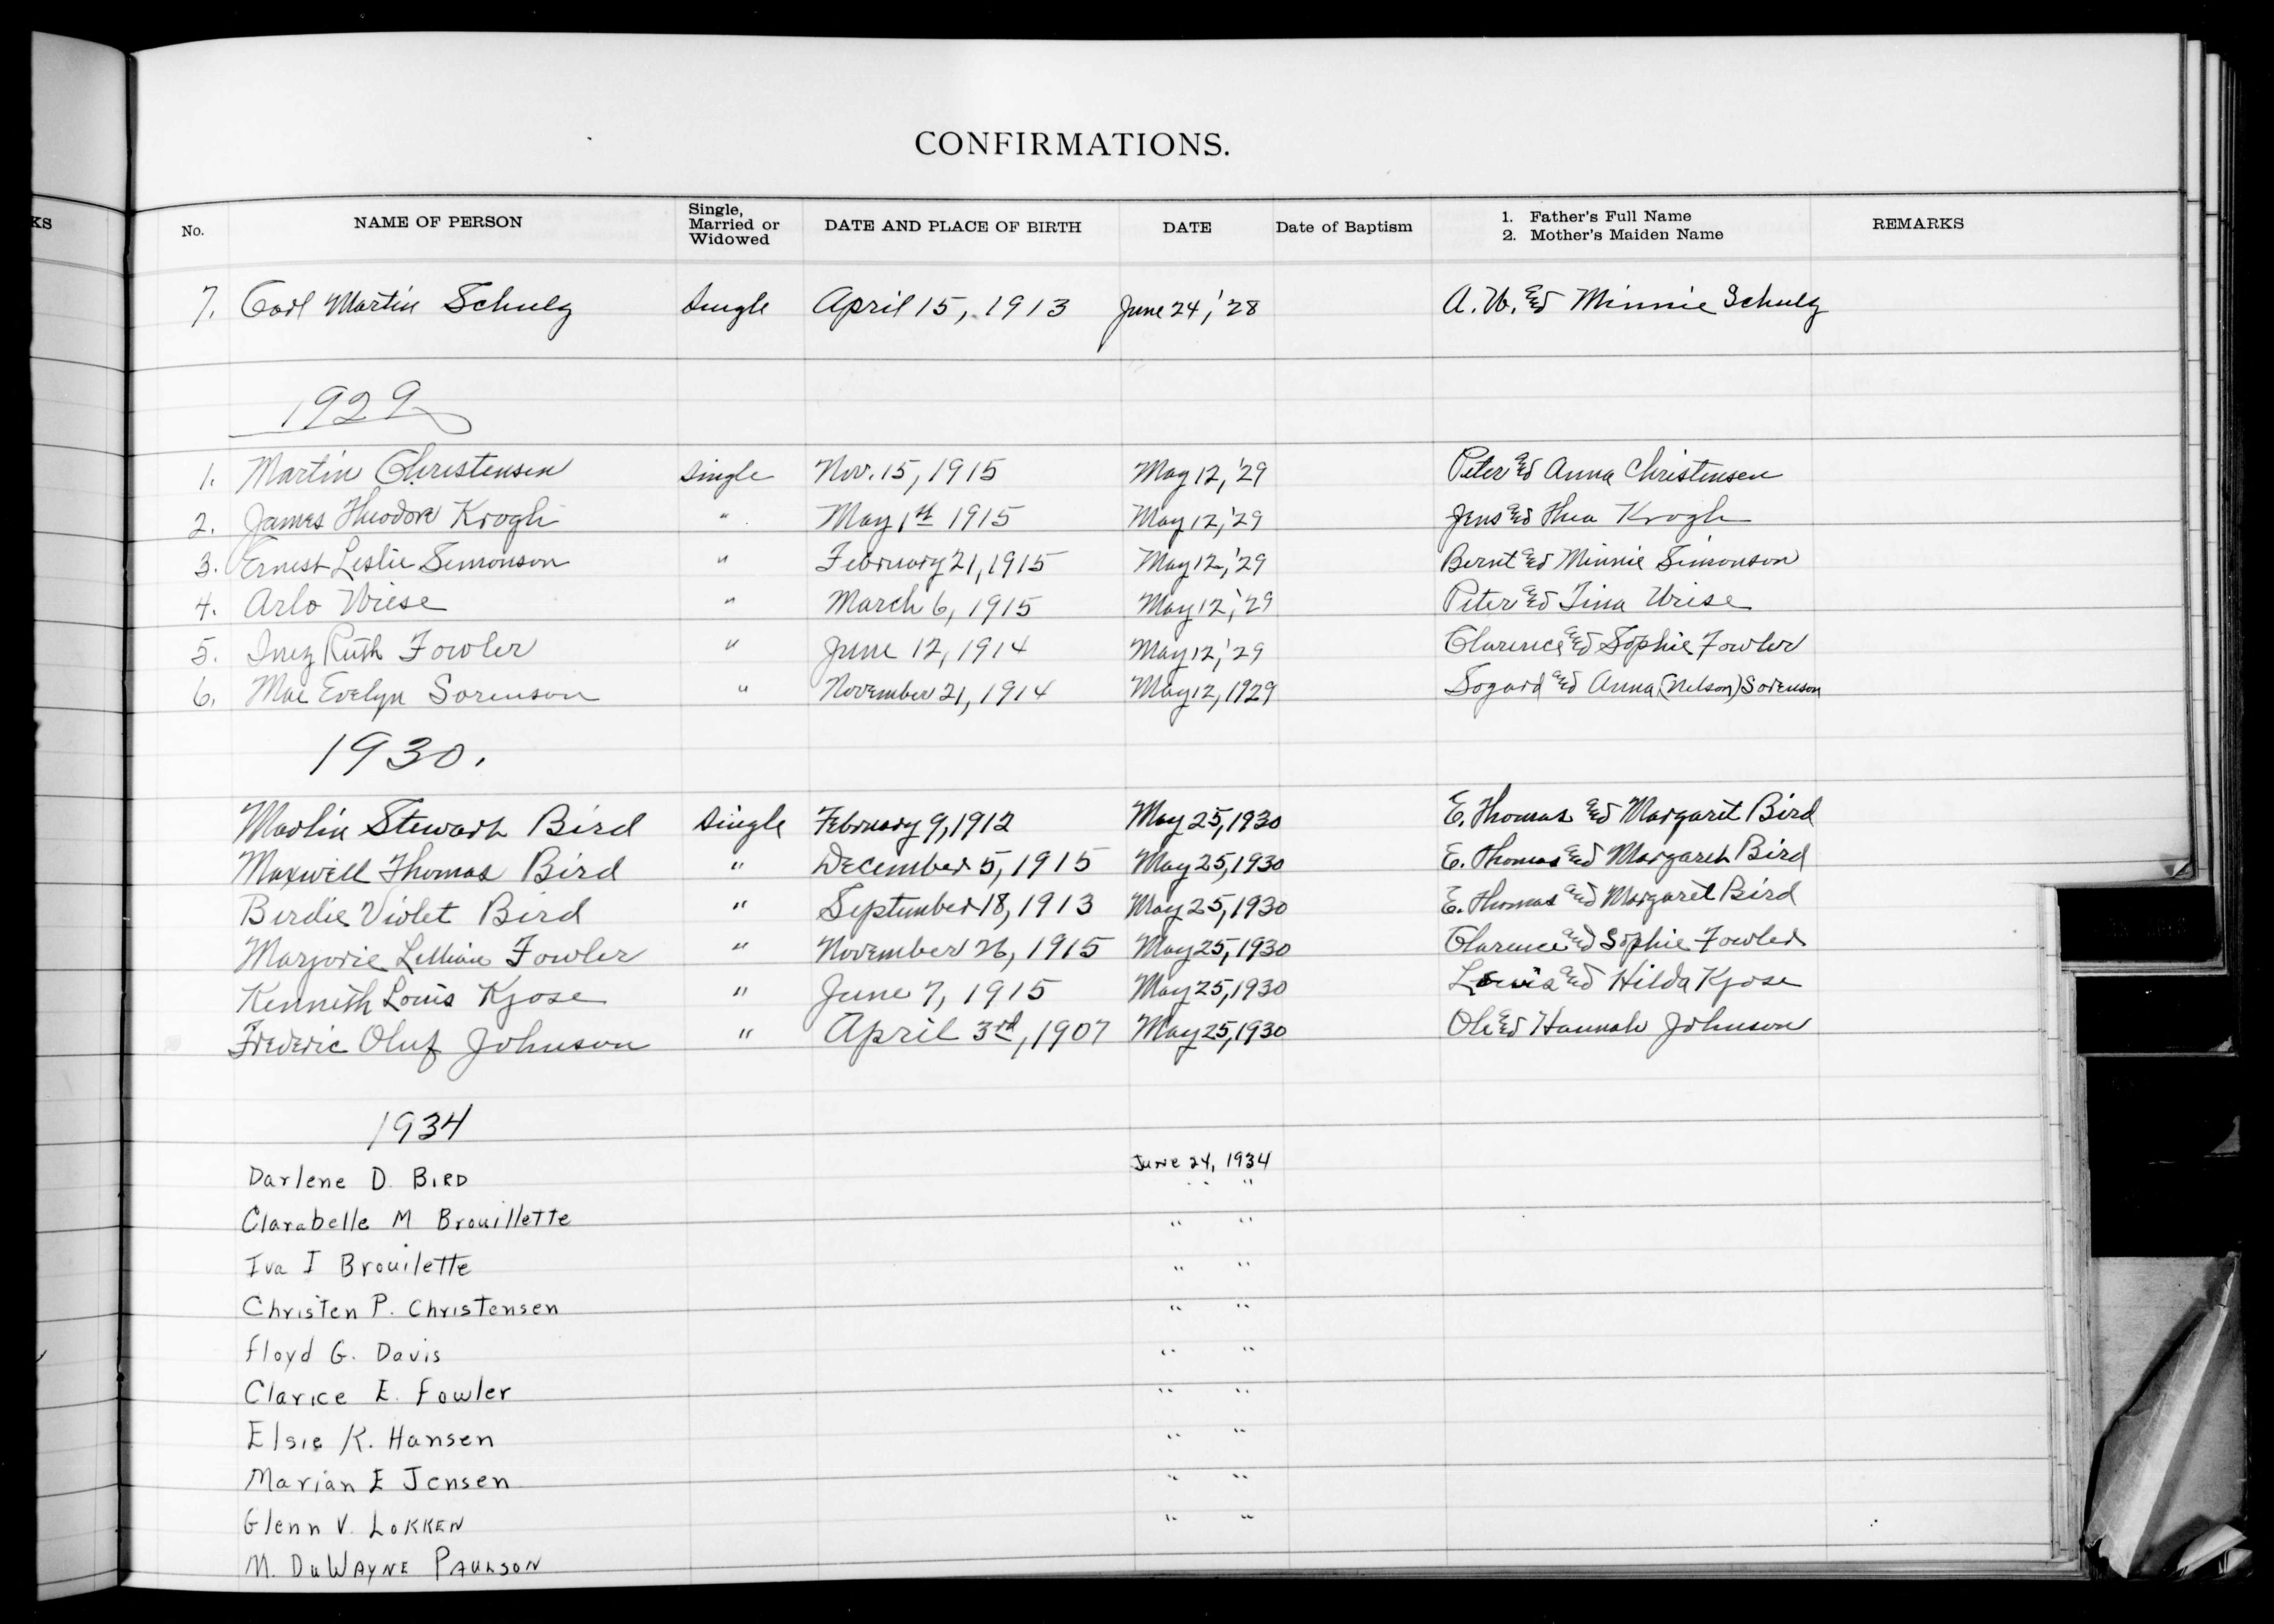 CONFIRMATIONS.
KS
No. NAME OF PERSON Single, Married or Widowed DATE AND PLACE OF BIRTH DATE Date of Baptism 1. Father's Full Name 2. Mother's Maiden Name REMARKS
7. Carl Martin Schulz Single April 15, 1913 June 24, '28 A. W. and Minnie Schulz
1929
1. Martin Christensen Single Nov. 15, 1915 May 12, '29 Peter and Anna Christensen
2. James Theodore Krogh " May 1st 1915 May 12, '29 Jens and Thea Krogh
3. Ernest Leslie Simonson " February 21, 1915 May 12, '29 Bernt and Minnie Simonson
4. Arlo Wiese " March 6, 1915 May 12, '29 Peter and Tina Wiese
5. Inez Ruth Fowler " June 12, 1914 May 12, '29 Clarence and Sophie Fowler
6. Mae Evelyn Sorenson " November 21, 1914 May 12, 1929 Sogard and Anna (Nelson) Sorenson
1930.
Marlin Stewart Bird Single February 9, 1912 May 25, 1930 E. Thomas and Margaret Bird
Maxwell Thomas Bird " December 5, 1915 May 25, 1930 E. Thomas and Margaret Bird
Birdie Violet Bird " September 18, 1913 May 25, 1930 E. Thomas and Margaret Bird
Marjorie Lillian Fowler " November 26, 1915 May 25, 1930 Clarence and Sophie Fowler
Kenneth Louis Kjose " June 7, 1915 May 25, 1930 Louis and Hilda Kjose
Frederic Oluf Johnson " April 3rd, 1907 May 25, 1930 Ole and Hannah Johnson
1934
June 24, 1934
Darlene D. BIRD " "
Clarabelle M Brouillette " "
Iva I Brouilette " "
Christen P. Christensen " "
Floyd G. Davis " "
Clarice E. Fowler " "
Elsie K. Hansen " "
Marian E Jensen " "
Glenn V. LOKKEN " "
M. DuWAYNE PAULSON